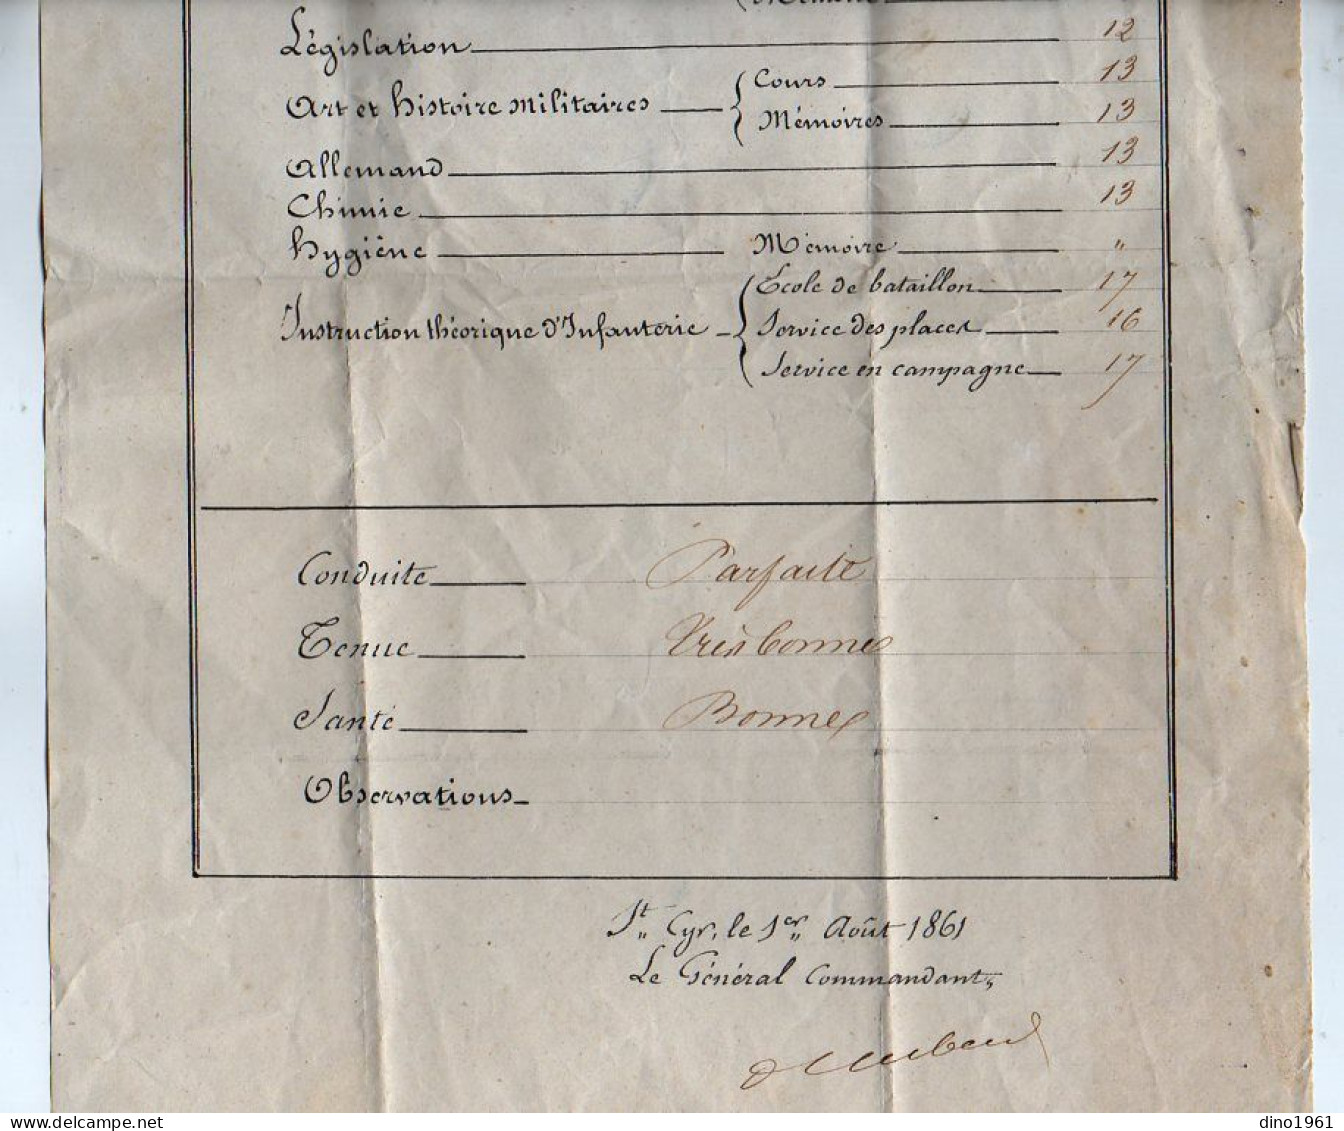 Mémoire
Législation 12
Art et histoire militaires Cours 13
Mémoires 13
Allemand 13
Chimie 13
hygiène Mémoire "
Instruction théorique d'Infanterie École de bataillon 17
Service des places 16
Service en campagne 17
Conduite Parfaite
Tenue Très bonne
Santé Bonne
Observations
St Cyr, le 1er Août 1861
Le Général Commandant,
dino1961